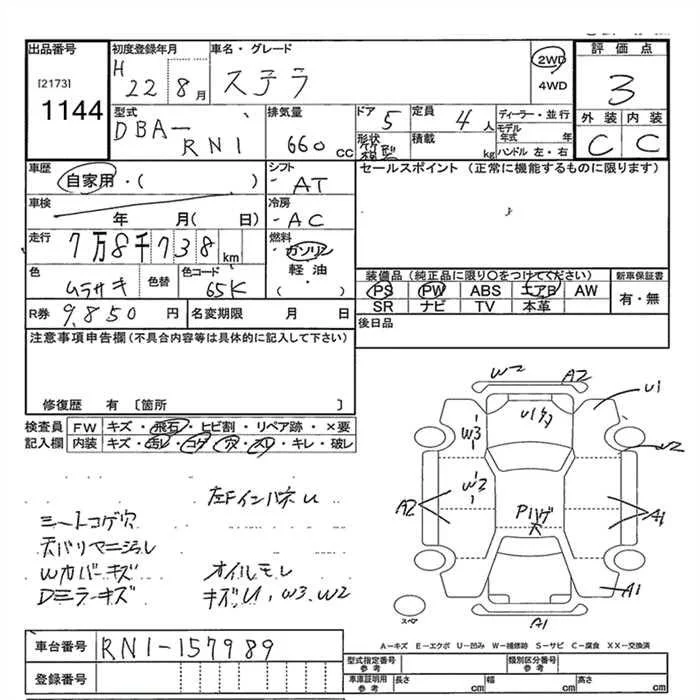 出品番号
[2173]
1144
初度登録年月
H 22 8 月
車名・グレード
ステラ
2WD
4WD
評価点
3
外装 内装
C C
型式
DBA-
RN1
排気量
660 cc
ドア 5
形状
定員 4 人
積載 kg
ディーラー・並行
モデル年式 年
ハンドル 左・右
車歴
自家用・( )
車検
年 月( 日)
走行
7万8千738 km
色
ムラサキ
色替
色コード
65K
シフト
AT
冷房
AC
燃料
ガソリン
軽油
( )
セールスポイント (正常に機能するものに限ります)
装備品 (純正品に限り〇をつけてください)
PS PW ABS エアB AW
SR ナビ TV 本革
新車保証書
有・無
R券 9,850 円
名変期限 月 日
後日品
注意事項申告欄(不具合内容等は具体的に記入して下さい)
修復歴 有 〔箇所 〕
検査員記入欄
FW キズ・飛石・ヒビ割・リペア跡・×要
内装 キズ・汚レ・コゲ・穴・スレ・キレ・破レ
左FインパネU
シートコゲ穴
天バリヤニヨゴレ
Wカバーキズ
Dミラーキズ
オイルモレ
キズU,W3,W2
W2
A2
U1
U1
W3
W2
W2
A2
P1ハゲ
大
A1
A1
A1
スペア
A-キズ E-エクボ U-凹み W-補修跡 S-サビ C-腐食 XX-交換済
車台番号 RN1-157989
登録番号
型式指定番号
参考
類別区分番号
参考
車庫証明用
参考
長さ cm
幅 cm
高さ cm